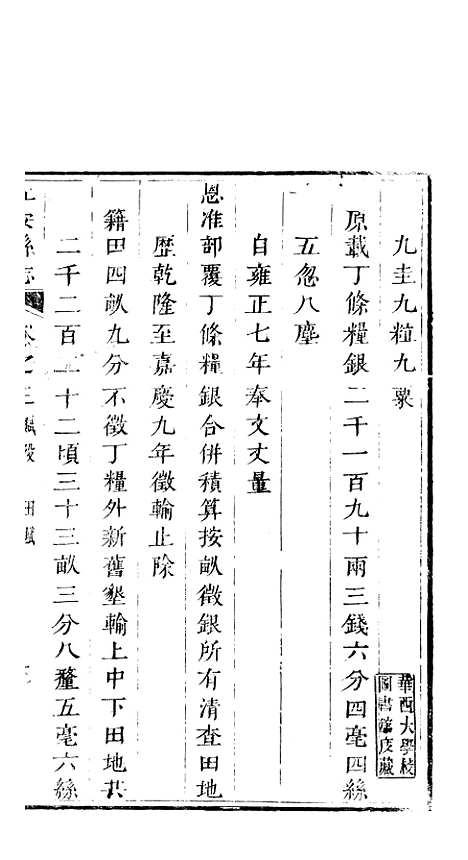 九圭九粒九粟
原載丁條糧銀二千一百九十兩三錢六分四毫四絲
五忽八塵
自雍正七年奉文丈量
恩准部覆丁條糧銀合併積算按畝徵銀所有清查田地
歷乾隆至嘉慶九年徵輸止除
籍田四畝九分不徵丁糧外新舊墾輸上中下田地共
二千二百二十二頃三十三畝三分八釐五毫六絲
安縣志 卷之三 賦役 田賦
華西大學校
圖書館庋藏